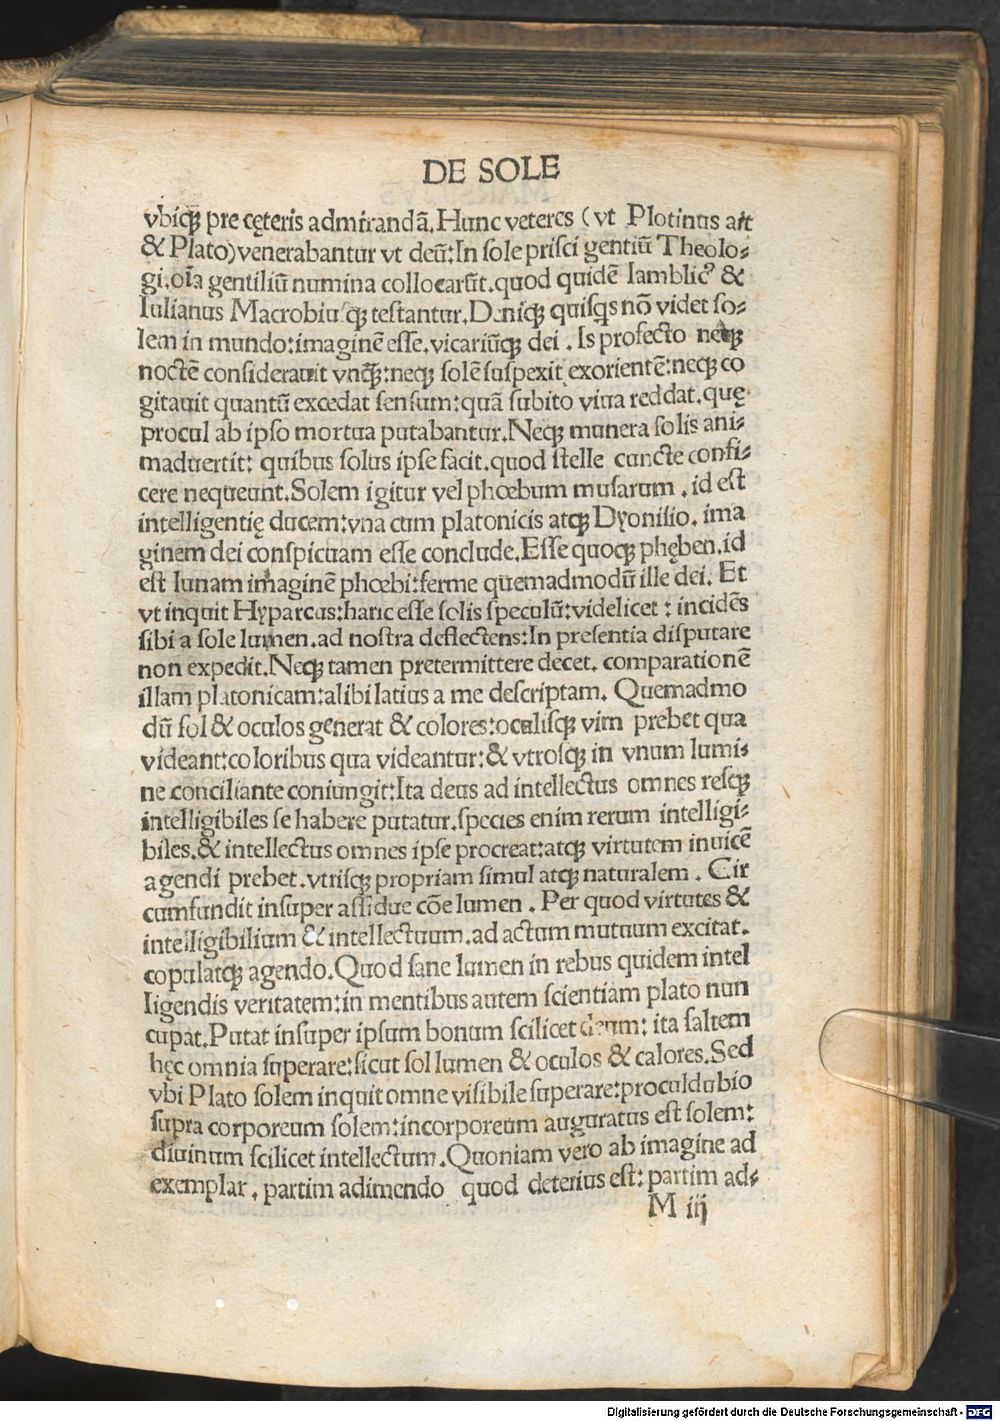 DE SOLE
vbicꝙ pre cęteris admirandā. Hunc veteres (vt Plotinus ait
& Plato) venerabantur vt deū: In sole prisci gentiū Theolo⸗
gi. oīa gentiliū numina collocarūt. quod quidē Iamblicꝰ &
Iulianus Macrobiusꝙ testantur. Deniꝙ quisꝗs nō videt so⸗
lem in mundo: imaginē esse. vicariūꝙ dei. Is profecto neꝙ
noctē considerauit vnꝙ̄: neꝙ solē suspexit exorientē: neꝙ co
gitauit quantū excedat sensum: quā subito viua reddat. quę
procul ab ipso mortua putabantur. Neꝙ munera solis ani⸗
maduertit: quibus solus ipse facit. quod stelle cuncte confi⸗
cere nequeunt. Solem igitur vel phœbum musarum. id est
intelligentię ducem: vna cum platonicis atꝙ Dyonisio. ima
ginem dei conspicuam esse conclude. Esse quoꝙ phęben. id
est lunam imaginē phœbi: ferme quemadmodū ille dei. Et
vt inquit Hyparcus: hanc esse solis speculū: videlicet: incidēs
sibi a sole lumen. ad nostra deflectens: In presentia disputare
non expedit. Neꝙ tamen pretermittere decet. comparationē
illam platonicam: alibi latius a me descriptam. Quemadmo
dū sol & oculos generat & colores: oculisꝙ vim prebet qua
videant: coloribus qua videantur: & vtrosꝙ in vnum lumi⸗
ne conciliante coniungit: Ita deus ad intellectus omnes resꝙ
intelligibiles se habere putatur. species enim rerum intelligi⸗
biles. & intellectus omnes ipse procreat: atꝙ virtutem inuicē
agendi prebet. vtrisꝙ propriam simul atꝙ naturalem. Cir
cumfundit insuper assidue cōe lumen. Per quod virtutes &
intelligibilium & intellectuum. ad actum mutuum excitat.
copulatꝙ agendo. Quod sane lumen in rebus quidem intel
ligendis veritatem: in mentibus autem scientiam plato nun
cupat. Putat insuper ipsum bonum scilicet deum: ita saltem
hęc omnia superare: sicut sol lumen & oculos & calores. Sed
vbi Plato solem inquit omne visibile superare: proculdubio
supra corporeum solem: incorporeum auguratus est solem:
diuinum scilicet intellectum. Quoniam vero ab imagine ad
exemplar, partim adimendo quod deterius est: partim ad⸗
M iij
Digitalisierung gefördert durch die Deutsche Forschungsgemeinschaft - DFG